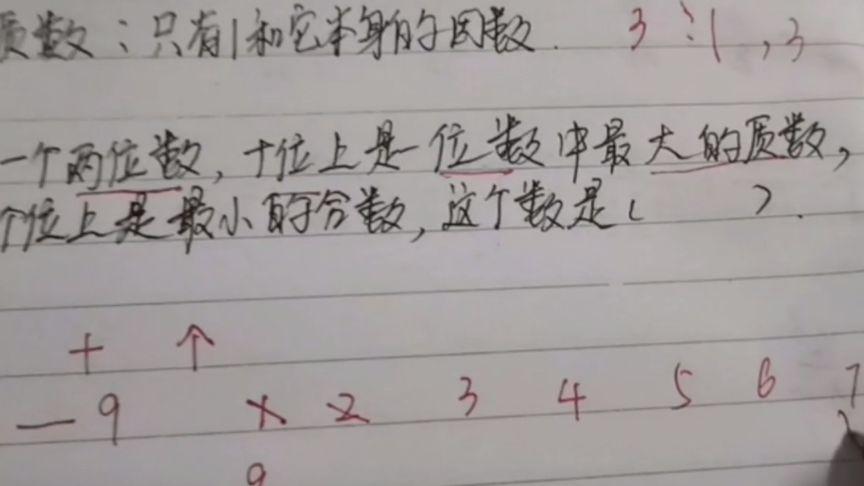 质数：只有1和它本身的因数. 3：1,3
一个两位数,十位上是一位数中最大的质数,
个位上是最小的合数,这个数是( ).
十 个
一9 × 2 3 4 5 6 7
9